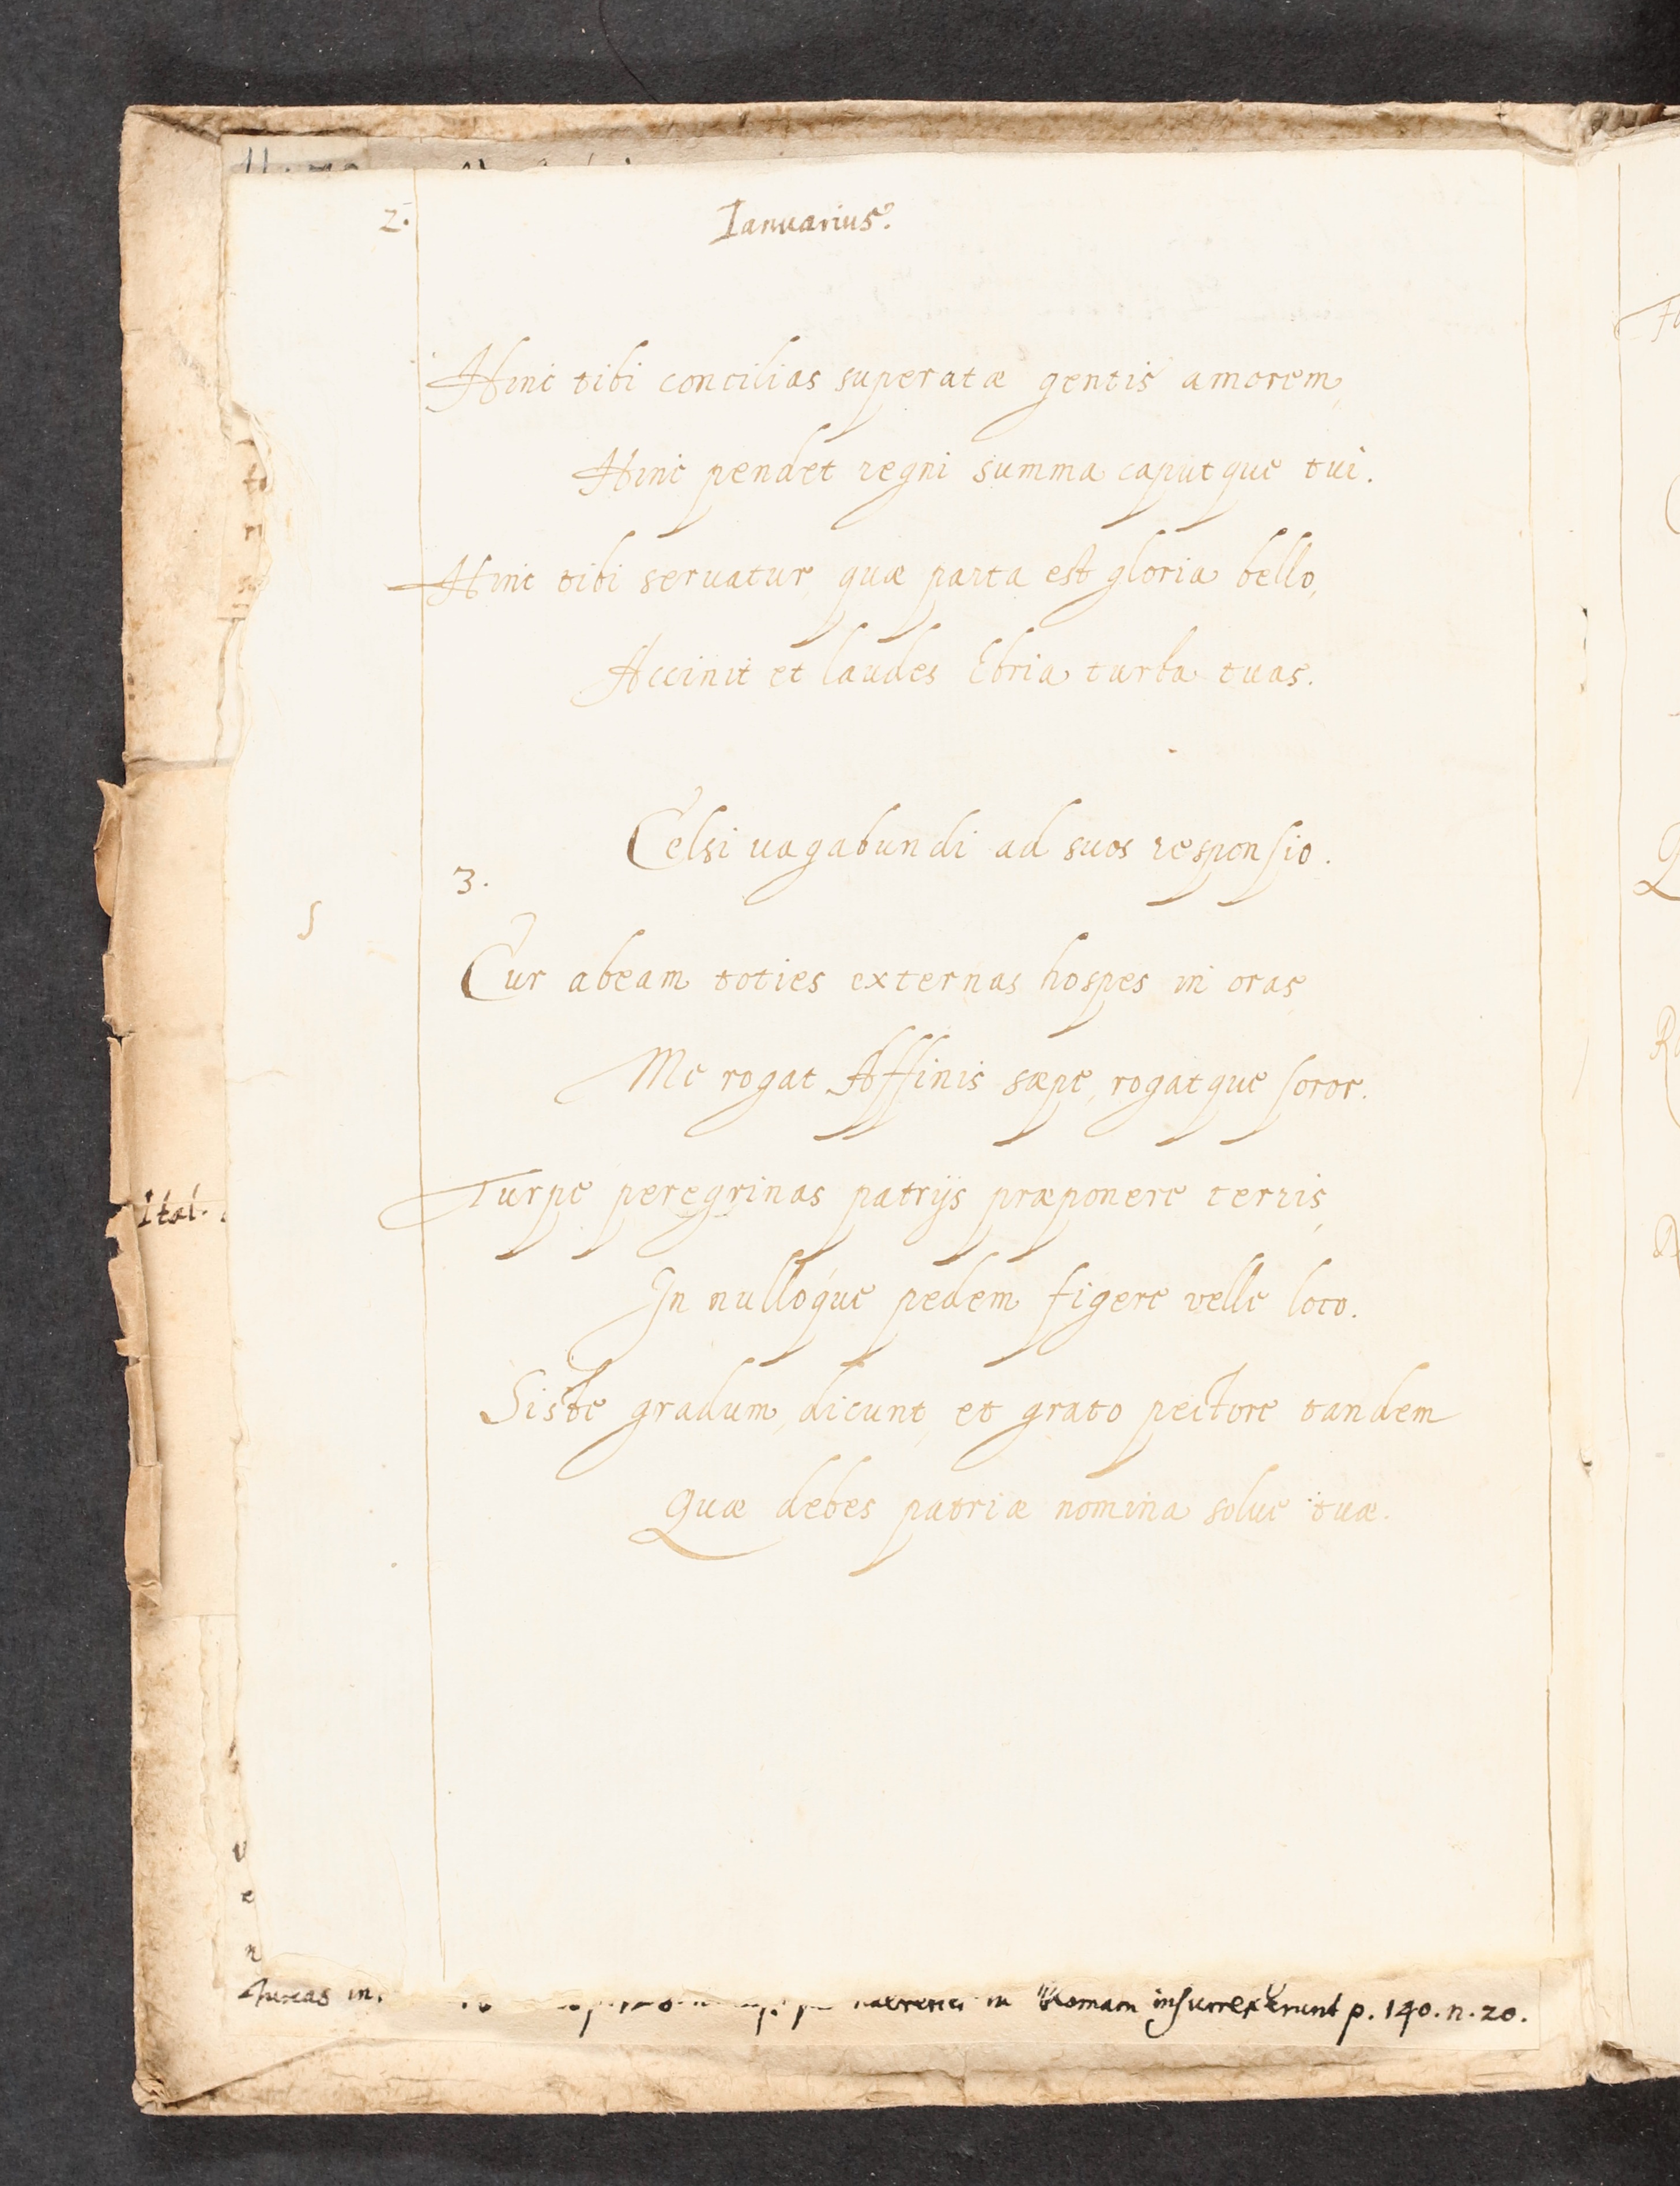 2. Ianuarius.
Hinc tibi concilias superatæ gentis amorem,
Hinc pendet regni summa caputque tui.
Hinc tibi seruatur quæ parta est gloria bello,
Accinit et laudes Ebria turba tuas.
Celsi uagabundi ad suos responsio.
3.
Cur abeam toties externas hospes in oras,
Me rogat Affinis sæpe, rogatque soror.
Turpe peregrinas patrijs præponere terris,
In nulloque pedem figere velle loco.
Siste gradum, dicunt, et grato pectore tandem
Quæ debes patriæ nomina solue tuæ.
Ital.
in Romam insurrexerunt p. 140. n. 20.